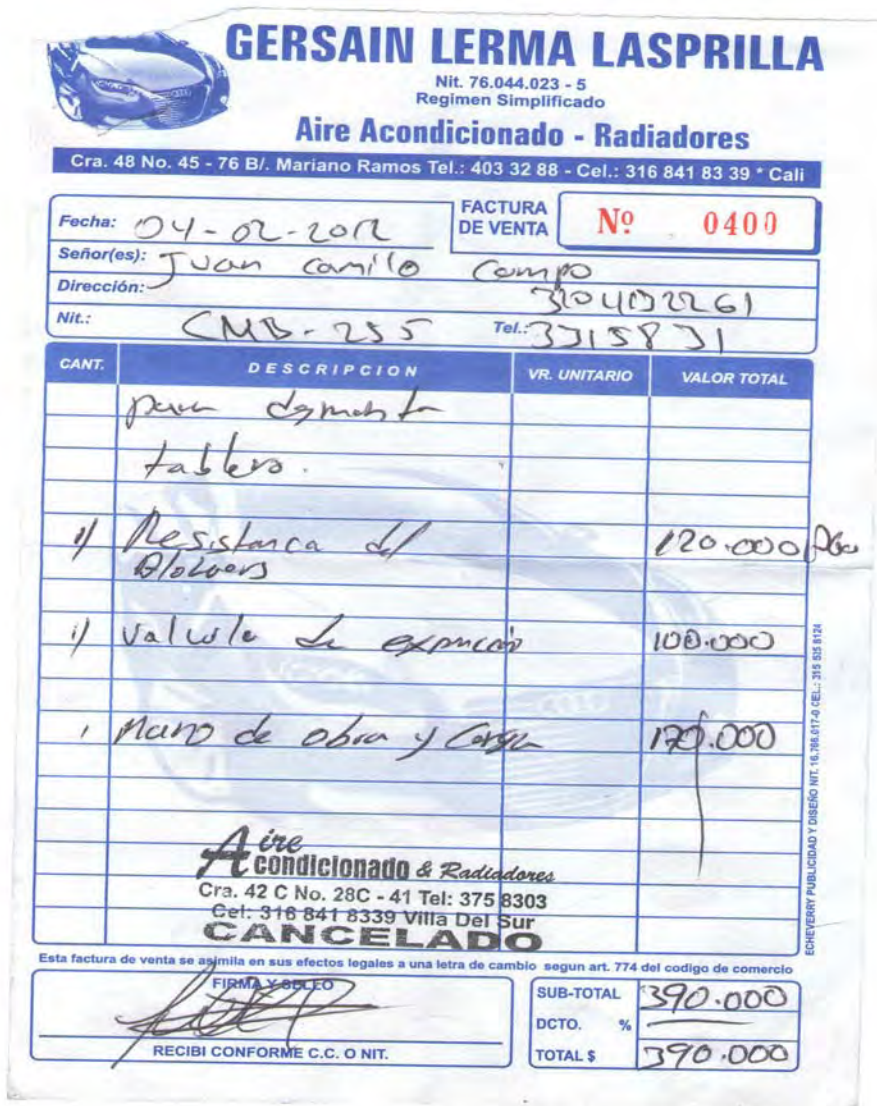 GERSAIN LERMA LASPRILLA
Nit. 76.044.023 - 5
Regimen Simplificado
Aire Acondicionado - Radiadores
Cra. 48 No. 45 - 76 B/. Mariano Ramos Tel.: 403 32 88 - Cel.: 316 841 83 39 * Cali
Fecha: 04-02-2012
FACTURA DE VENTA Nº 0400
Señor(es): Juan Camilo Campo
Dirección:
Nit.: CMB-255 Tel.: 3315831
CANT. DESCRIPCION VR. UNITARIO VALOR TOTAL
para
tablero.
1/ Resistanca del 120.000
1/ Valvula de 100.000
1 Mano de obra y Carga 170.000
Aire Acondicionado & Radiadores
Cra. 42 C No. 28C - 41 Tel: 375 8303
Cel: 316 841 8339 Villa Del Sur
CANCELADO
ECHEVERRY PUBLICIDAD Y DISEÑO NIT. 16.766.017-0 CEL.: 315 525 8124
Esta factura de venta se asimila en sus efectos legales a una letra de cambio segun art. 774 del codigo de comercio
FIRMA Y SELLO
RECIBI CONFORME C.C. O NIT.
SUB-TOTAL 390.000
DCTO. %
TOTAL $ 390.000